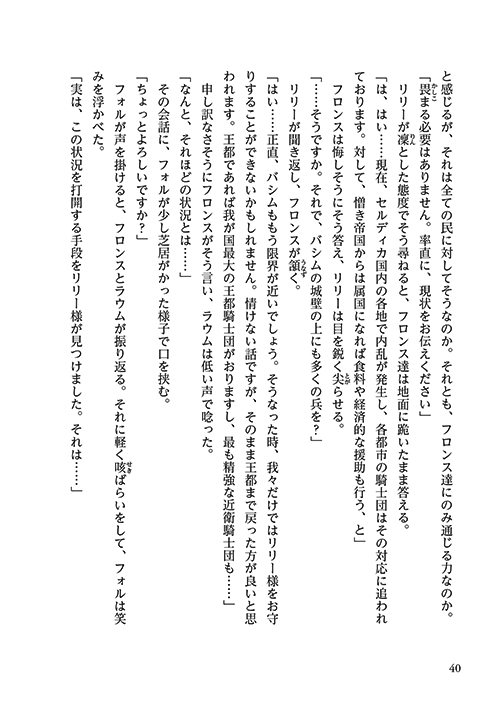 と感じるが、それは全ての民に対してそうなのか。それとも、フロンス達にのみ通じる力なのか。
「畏まる必要はありません。率直に、現状をお伝えください」
リリーが凜とした態度でそう尋ねると、フロンス達は地面に跪いたまま答える。
「は、はい……現在、セルディカ国内の各地で内乱が発生し、各都市の騎士団はその対応に追われ
ております。対して、憎き帝国からは属国になれば食料や経済的な援助も行う、と」
フロンスは悔しそうにそう答え、リリーは目を鋭く尖らせる。
「……そうですか。それで、バシムの城壁の上にも多くの兵を？」
リリーが聞き返し、フロンスが頷く。
「はい……正直、バシムももう限界が近いでしょう。そうなった時、我々だけではリリー様をお守
りすることができないかもしれません。情けない話ですが、そのまま王都まで戻った方が良いと思
われます。王都であれば我が国最大の王都騎士団がおりますし、最も精強な近衛騎士団も……」
申し訳なさそうにフロンスがそう言い、ラウムは低い声で唸った。
「なんと、それほどの状況とは……」
その会話に、フォルが少し芝居がかった様子で口を挟む。
「ちょっとよろしいですか？」
フォルが声を掛けると、フロンスとラウムが振り返る。それに軽く咳ばらいをして、フォルは笑
みを浮かべた。
「実は、この状況を打開する手段をリリー様が見つけました。それは……」
40